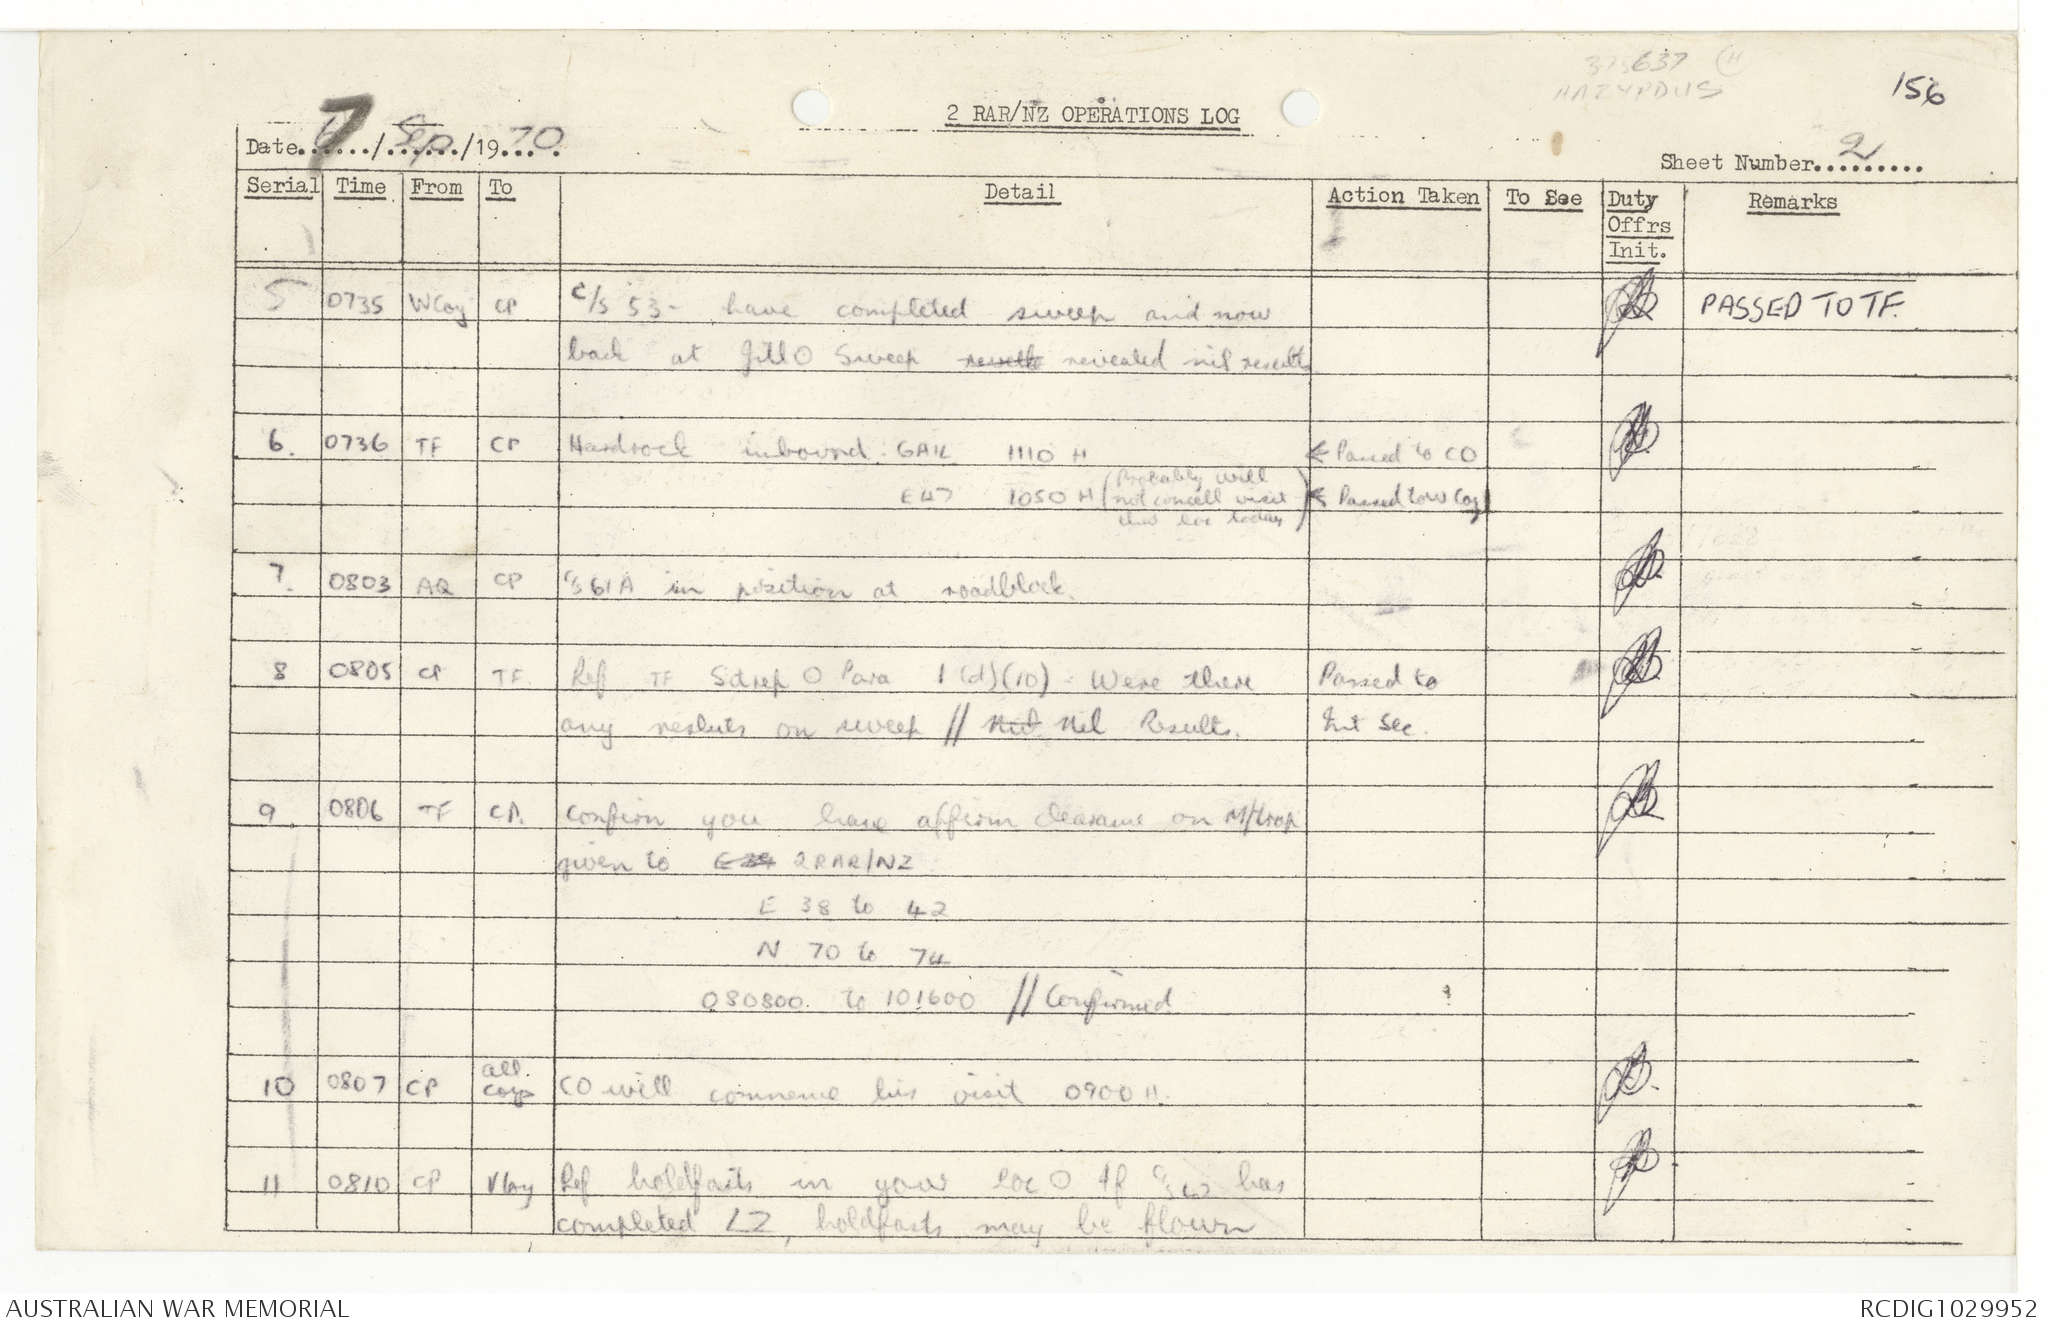 156
2 RAR/NZ OPERATIONS LOG
Date 7/Sep/1970.
Sheet Number 2
Serial Time From To Detail Action Taken To See Duty Offrs Init. Remarks
5 0735 WCoy CP C/S 53 - have completed sweep and now PASSED TO TF.
back at Jill O Sweep revealed nil results
6. 0736 TF CP Hardrock inbound. GAIL 1110 H ← Passed to CO
E47 1050 H (Probably will not cancell visit this loc today) ← Passed to W Coy
7. 0803 AQ CP C/S 61A in position at roadblock.
8 0805 CP TF. Ref TF Sitrep O Para 1 (d)(10) : Were there Passed to
any resluts on sweep // Nil Nil Results. Int Sec.
9 0806 TF CP. Confirm you have affirm clearance on M/trap
given to 2RAR/NZ
E 38 to 42
N 70 to 74
080800 to 101600 // Confirmed
10 0807 CP all coys CO will commence his visit 0900 H.
11 0810 CP V Coy Ref holdfasts in your loc O If C/S has
completed LZ, holdfasts may be flown
AUSTRALIAN WAR MEMORIAL
RCDIG1029952